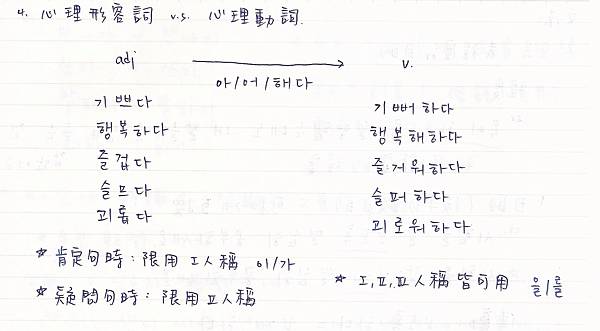 4. 心理形容詞 v.s. 心理動詞.
adj → v.
아/어/해다
기쁘다 기뻐하다
행복하다 행복해하다
즐겁다 즐거워하다
슬프다 슬퍼하다
괴롭다 괴로워하다
☆ 肯定句時:限用 I人稱 이/가
☆ I,II,III人稱 皆可用 을/를
☆ 疑問句時:限用 II人稱